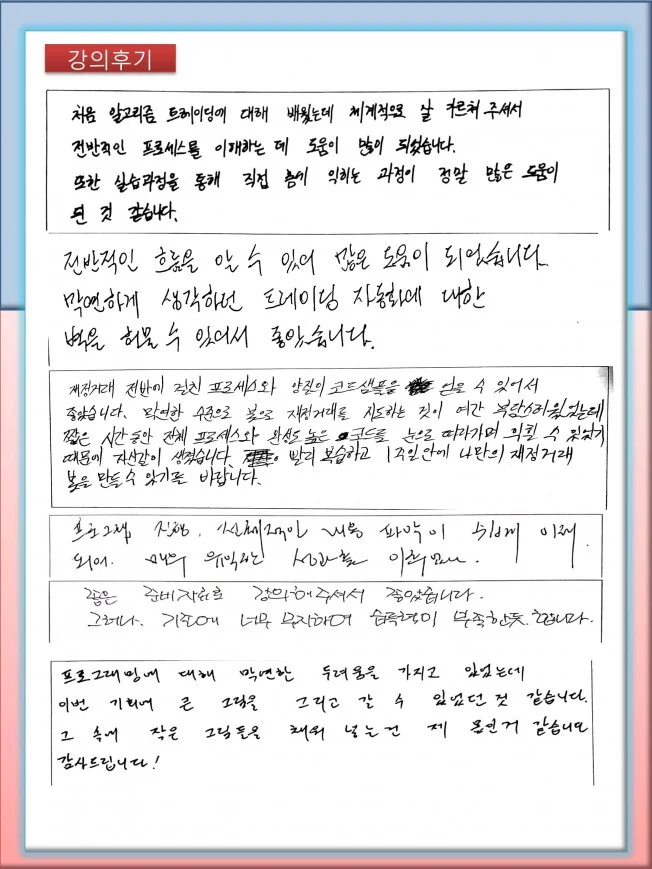 강의후기
처음 알고리즘 트레이딩에 대해 배웠는데 체계적으로 잘 가르쳐 주셔서
전반적인 프로세스를 이해하는 데 도움이 많이 되었습니다.
또한 실습과정을 통해 직접 몸에 익히는 과정이 정말 많은 도움이
된 것 같습니다.
전반적인 흐름을 알 수 있어 많은 도움이 되었습니다.
막연하게 생각하던 트레이딩 자동화에 대한
벽을 허물 수 있어서 좋았습니다.
재정거래 전반에 걸친 프로세스와 양질의 코드샘플을 얻을 수 있어서
좋았습니다. 막연한 수준으로 봇으로 재정거래를 시도하는 것이 여간 복잡스러웠었는데
짧은 시간동안 전체 프로세스와 완성도 높은 코드를 눈으로 따라가며 익힐 수 있었기
때문에 자신감이 생겼습니다. 빨리 복습하고 1주일안에 나만의 재정거래
봇을 만들수 있기를 바랍니다.
프로그램 진행, 내용 파악이 쉽게 이해
되어. 매우 유익한 성과를
좋은 준비자료로 강의해주셔서 좋았습니다.
그러나, 기존에 너무 무지하여 습득력이 부족한듯.합니다.
프로그래밍에 대해 막연한 두려움을 가지고 있었는데
이번 기회에 큰 그림을 그리고 갈 수 있었던 것 같습니다.
그 속에 작은 그림들을 채워 넣는건 제 몫인거 같습니다
감사드립니다!